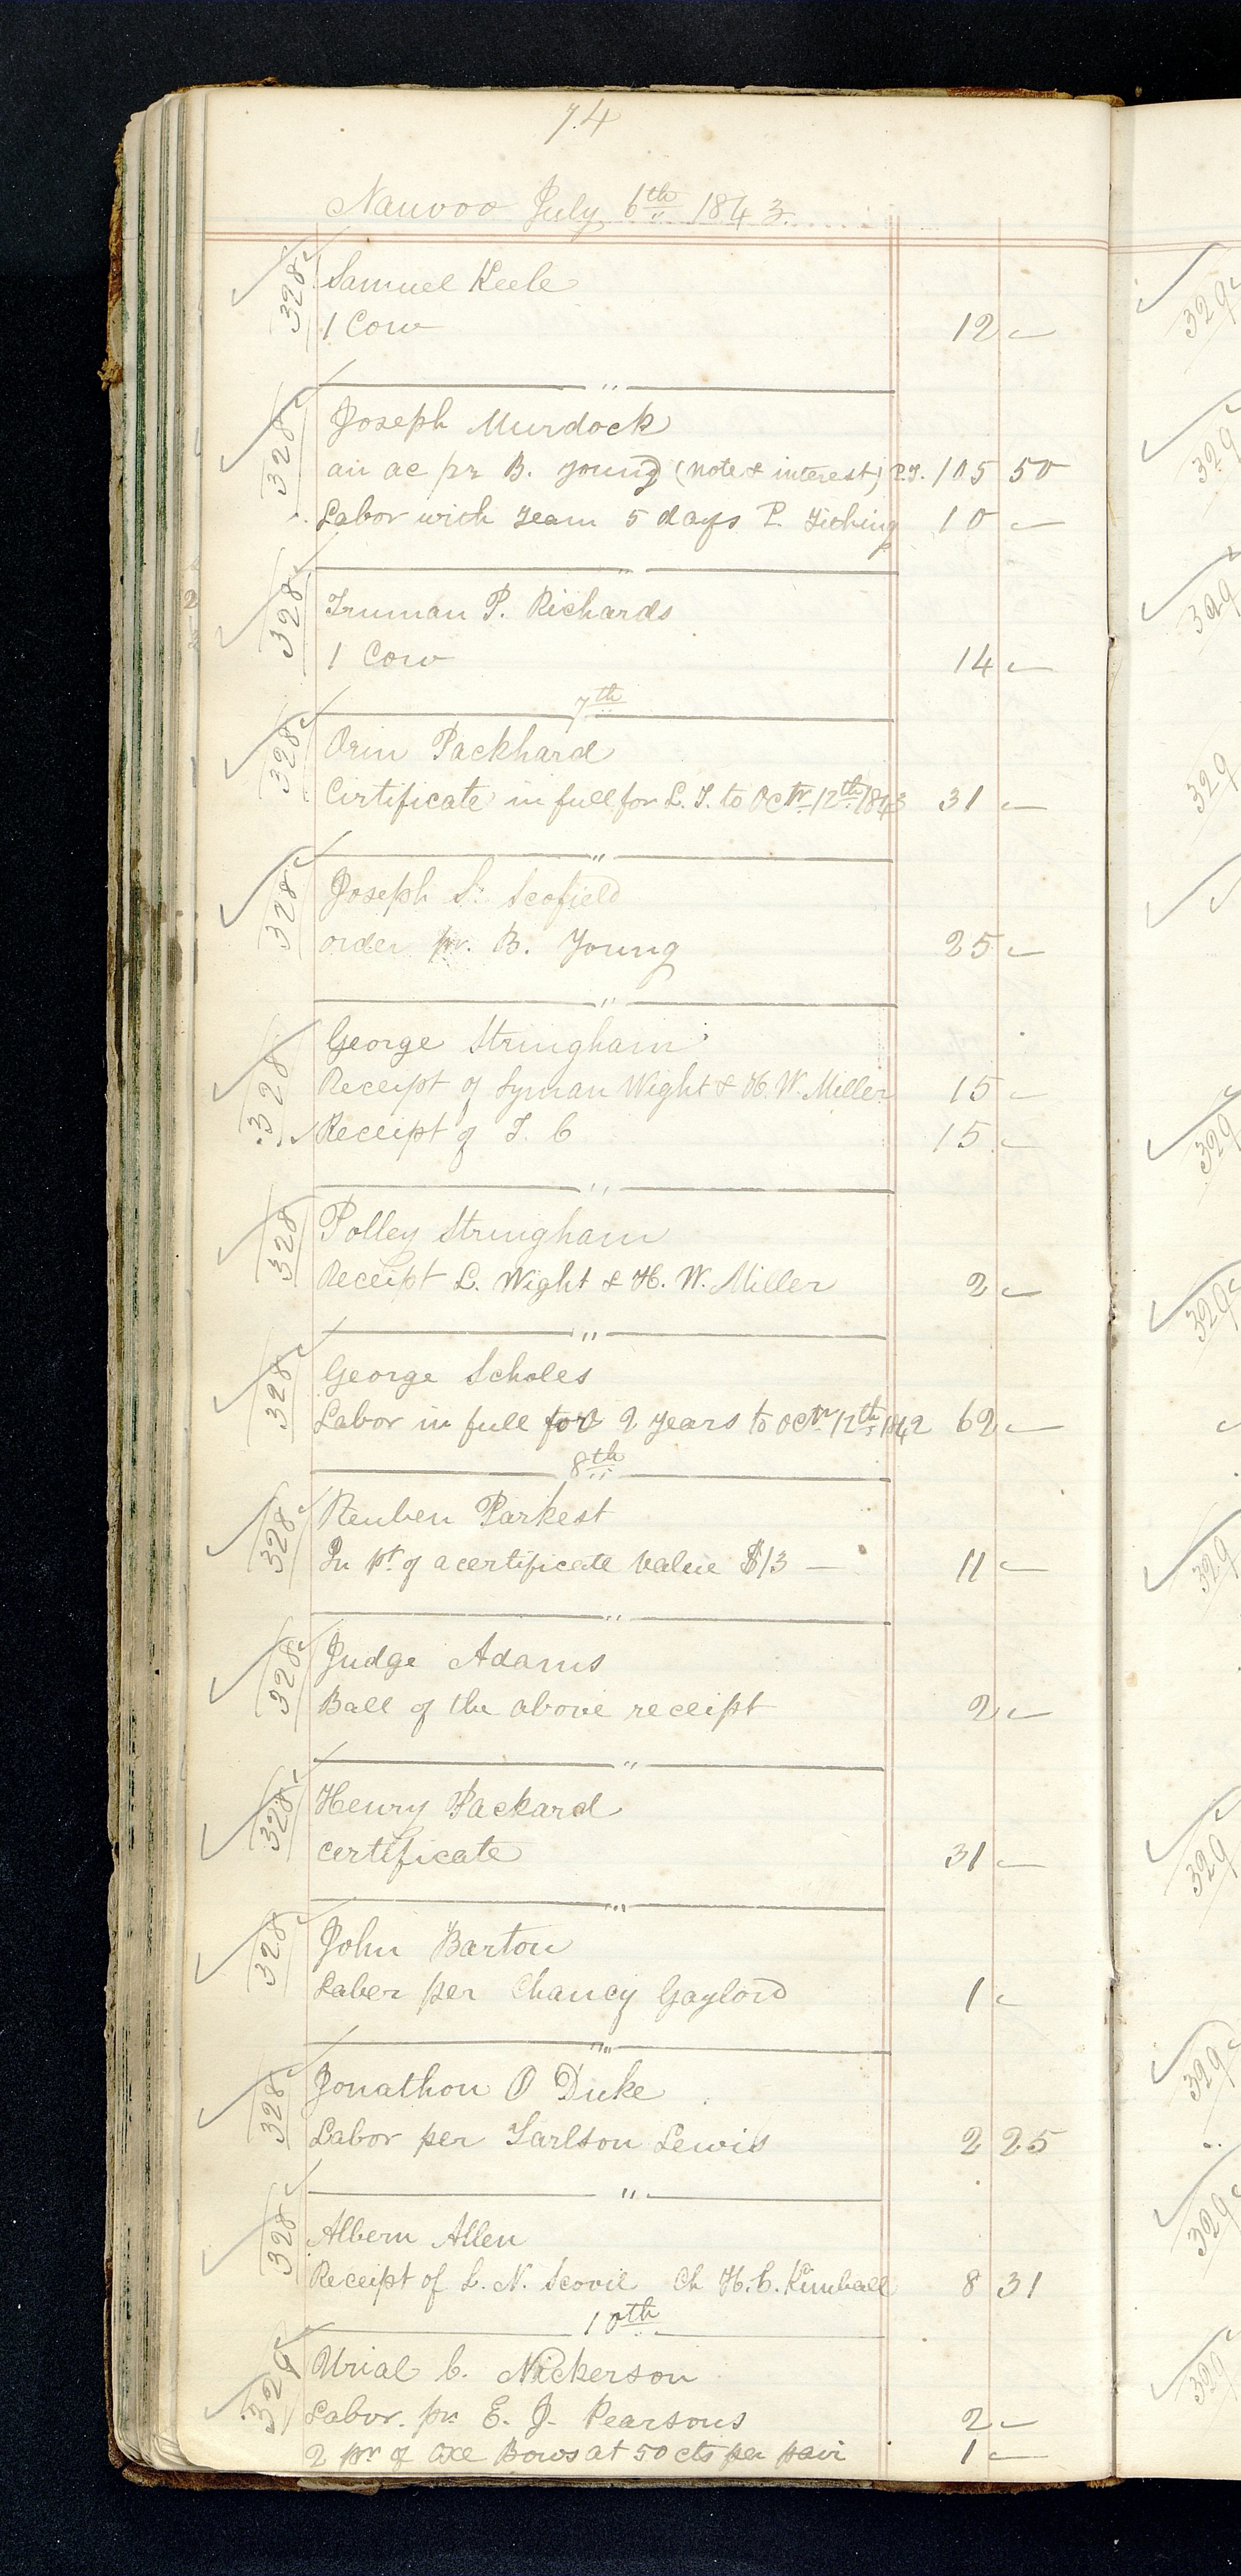 74
Nauvoo July 6th 1843.
328 Samuel Keele
1 Cow 12 —
"
328 Joseph Murdock
an ac pr B. Young (note & interest) P.T. 105 50
Labor with Team 5 days P. Tithing 10 —
"
328 Truman P. Richards
1 Cow 14 —
7th
328 Orin Packhard
Cirtificate in full for L. T. to Octr 12th 1843 31 —
"
328 Joseph S. Scofield
order pr. B. Young 25 —
"
328 George Stringham
Receipt of Lyman Wight & H. W. Miller 15 —
Receipt of T. C 15 —
"
328 Polley Stringham
Receipt L. Wight & H. W. Miller 2 —
"
328 George Scholes
Labor in full for 2 years to Octr 12th 1842 62 —
8th
328 Reuben Parkest
In pt. of a certificate value $13 — 11 —
"
328 Judge Adams
Ball of the above receipt 2 —
"
328 Henry Packard
certificate 31 —
"
328 John Barton
Laber per Chancy Gaylord 1 —
"
328 Jonathon O Duke
Labor per Tarlton Lewis 2 25
"
328 Albern Allen
Receipt of L. N. Scovil Ch H. C. Kimball 8 31
10th
328 Urial C. Nickerson
Labor. pr. E. J. Pearsons 2 —
2 pr of Oxe Bows at 50 cts per pair 1 —
329
329
329
329
329
329
329
329
329
329
329